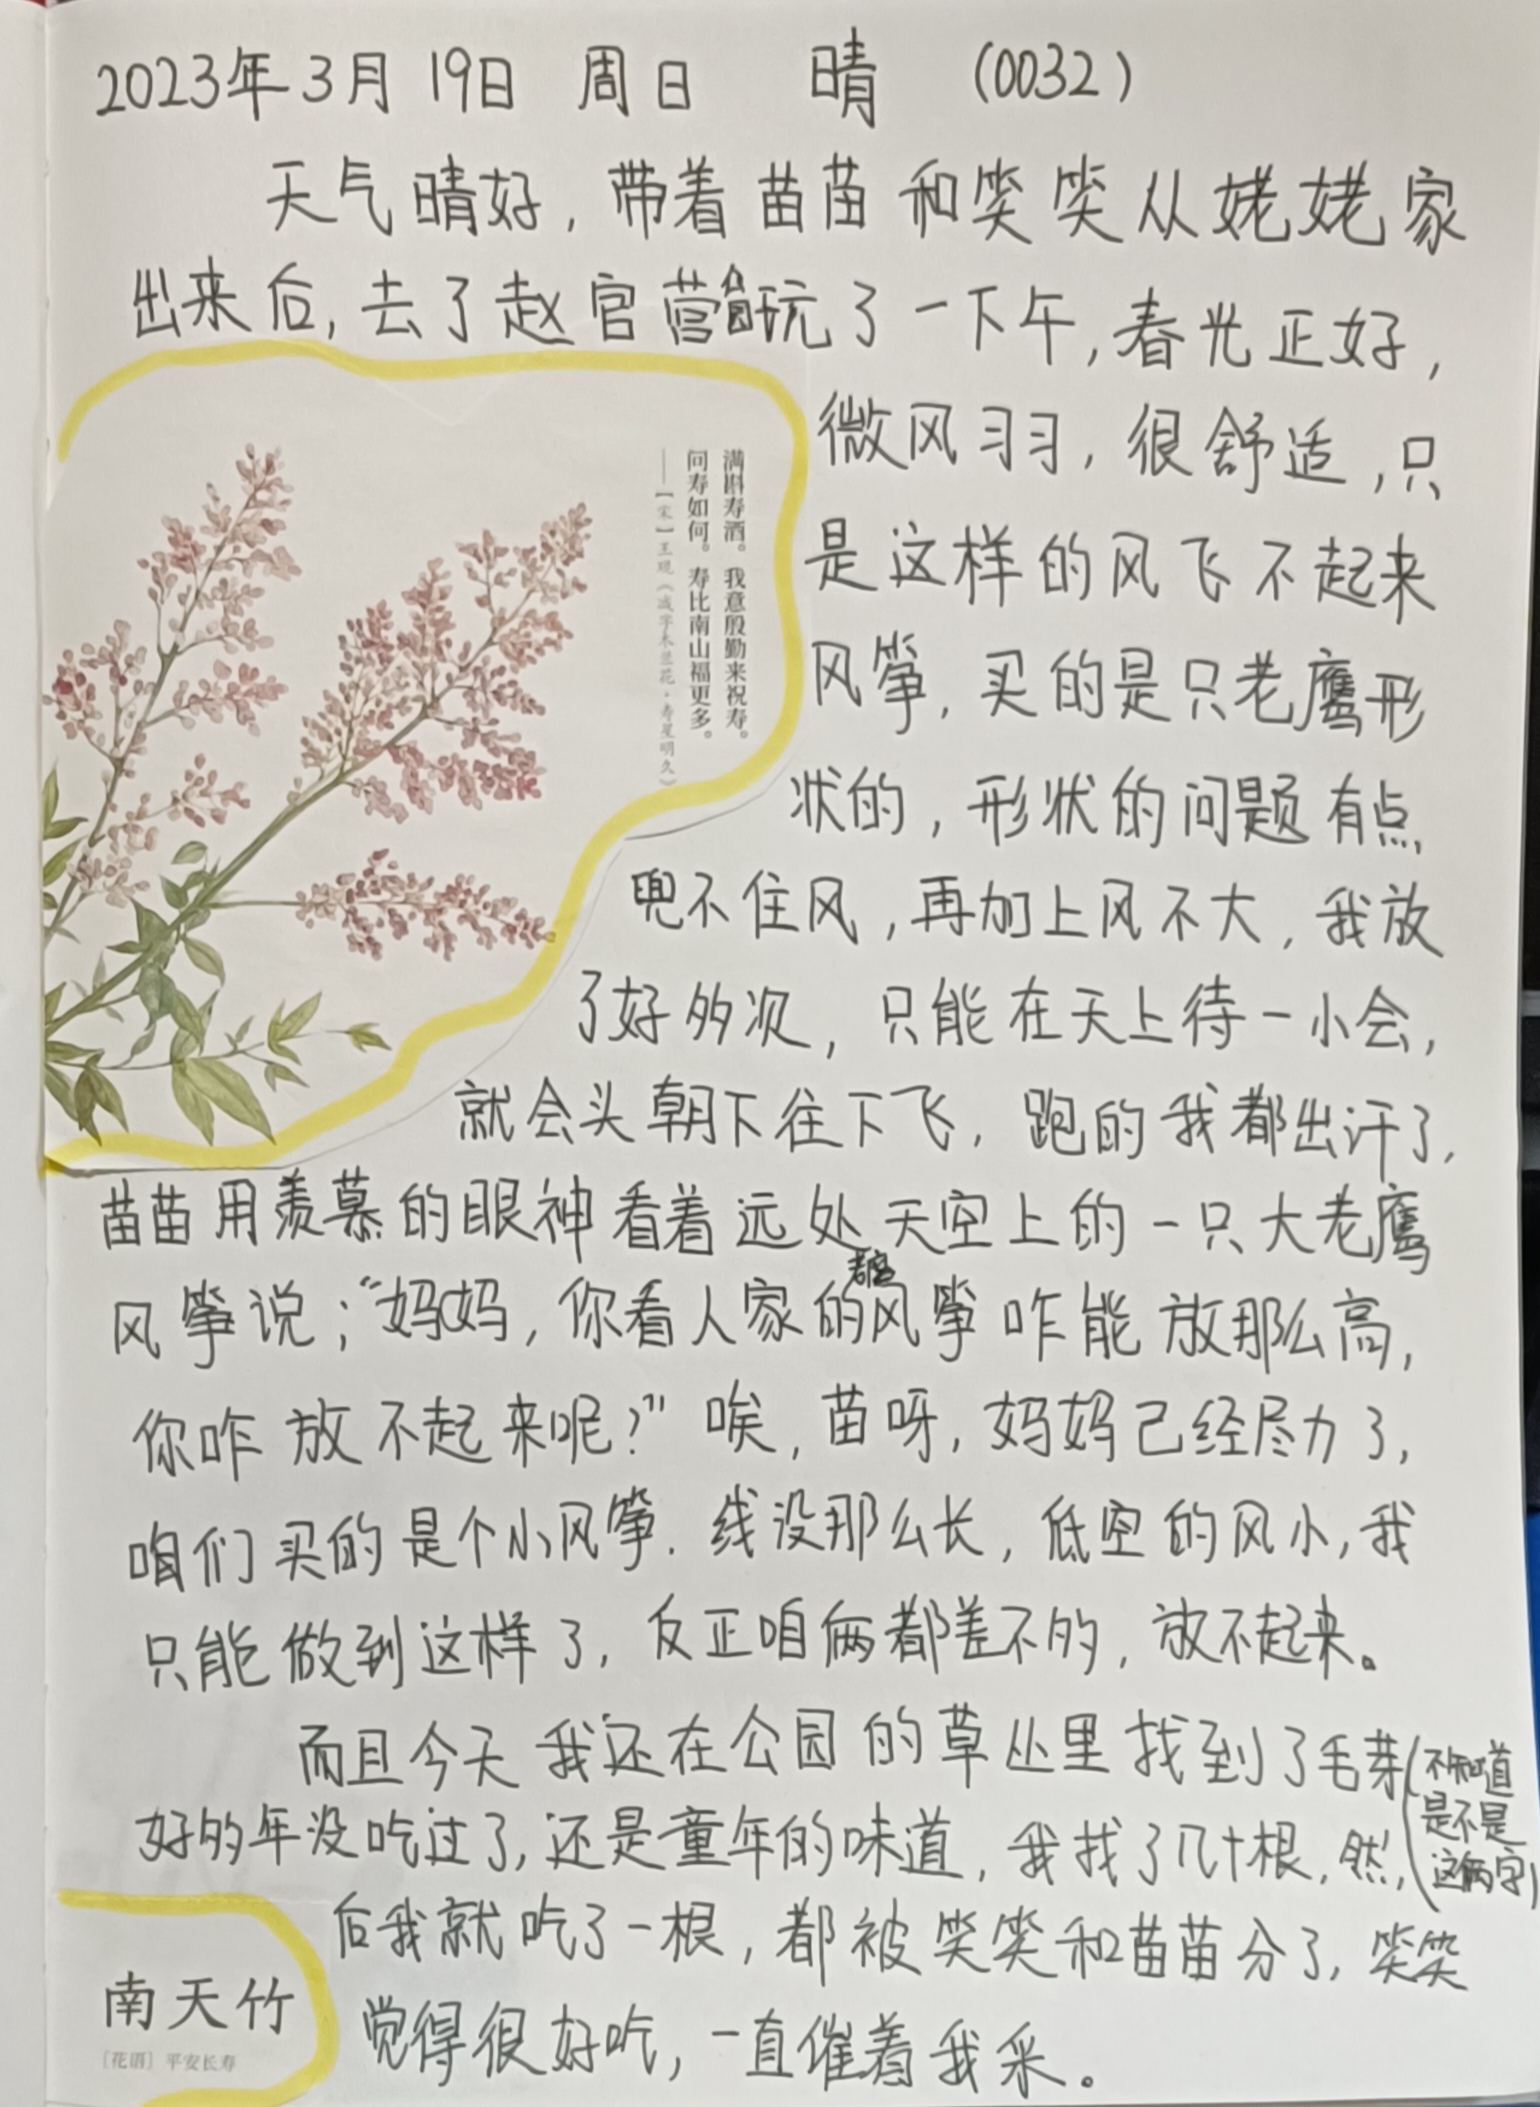 2023年3月19日 周日 晴 (0032)
天气晴好，带着苗苗和笑笑从姥姥家
出来后，去了赵官营玩了一下午，春光正好，
微风习习，很舒适，只
是这样的风飞不起来
风筝，买的是只老鹰形
状的，形状的问题有点
兜不住风，再加上风不大，我放
了好多次，只能在天上待一小会，
就会头朝下往下飞，跑的我都出汗了，
苗苗用羡慕的眼神看着远处天空上的一只大老鹰
风筝说；“妈妈，你看人家的老鹰风筝咋能放那么高，
你咋放不起来呢？”唉，苗呀，妈妈已经尽力了，
咱们买的是个小风筝．线没那么长，低空的风小，我
只能做到这样了，反正咱俩都差不多，放不起来。
而且今天我还在公园的草丛里找到了毛芽(不知道
是不是
这两字)
好多年没吃过了，还是童年的味道，我找了几十根，然，
后我就吃了一根，都被笑笑和苗苗分了，笑笑
觉得很好吃，一直催着我采。
满斟寿酒。我意殷勤来祝寿。
问寿如何。寿比南山福更多。
——【宋】王观《减字木兰花·寿星明久》
南天竹
［花语］平安长寿